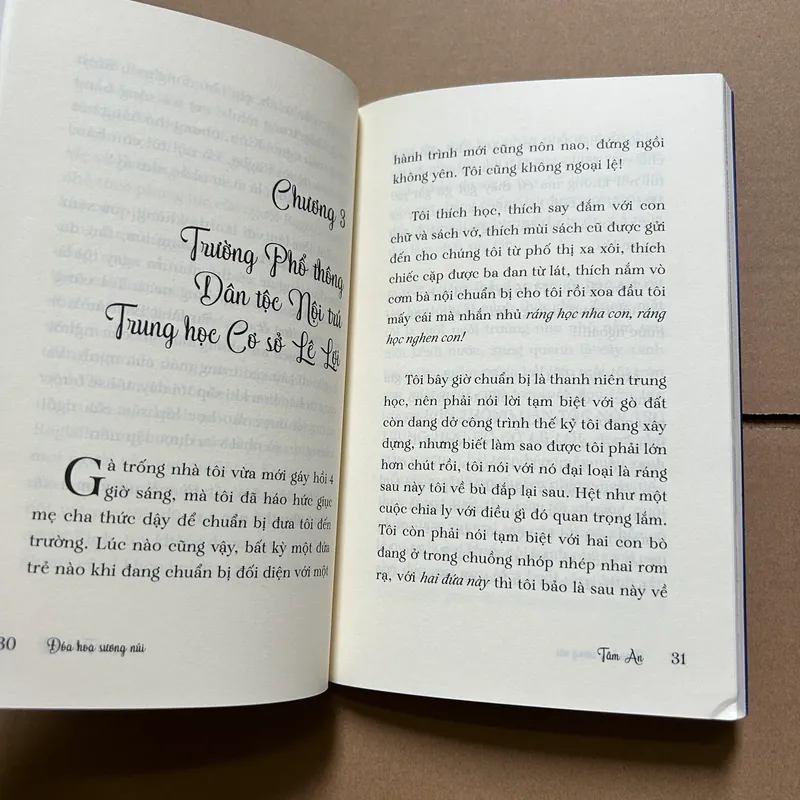 Chương 3
Trường Phổ thông
Dân tộc Nội trú
Trung học Cơ sở Lê Lợi
Gà trống nhà tôi vừa mới gáy hồi 4
giờ sáng, mà tôi đã háo hức giục
mẹ cha thức dậy để chuẩn bị đưa tôi đến
trường. Lúc nào cũng vậy, bất kỳ một đứa
trẻ nào khi đang chuẩn bị đối diện với một
30 Đóa hoa sương núi
hành trình mới cũng nôn nao, đứng ngồi
không yên. Tôi cũng không ngoại lệ!
Tôi thích học, thích say đắm với con
chữ và sách vở, thích mùi sách cũ được gửi
đến cho chúng tôi từ phố thị xa xôi, thích
chiếc cặp được ba đan từ lát, thích nắm vò
cơm bà nội chuẩn bị cho tôi rồi xoa đầu tôi
mấy cái mà nhắn nhủ ráng học nha con, ráng
học nghen con!
Tôi bây giờ chuẩn bị là thanh niên trung
học, nên phải nói lời tạm biệt với gò đất
còn dang dở công trình thế kỷ tôi đang xây
dựng, nhưng biết làm sao được tôi phải lớn
hơn chút rồi, tôi nói với nó đại loại là ráng
sau này tôi về bù đắp lại sau. Hệt như một
cuộc chia ly với điều gì đó quan trọng lắm.
Tôi còn phải nói tạm biệt với hai con bò
đang ở trong chuồng nhóp nhép nhai rơm
rạ, với hai đứa này thì tôi bảo là sau này về
Tâm An 31